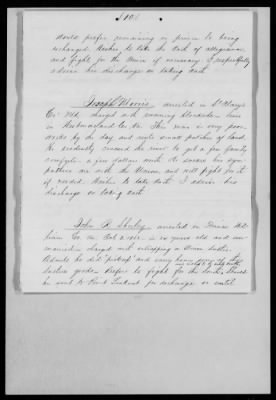 would prefer remaining in prison to being
exchanged. Wishes to take the Oath of allegiance
and fight for the Union if necessary. I respectfully
advise his discharge on taking oath
Joseph Morris arrested in St Marys
Co. Md. charged with running blockade from
in Westmoreland Co Va. This man is very poor
works by the day and rents small patches of land.
He evidently crossed the river to get a few family
comforts a few dollars worth. He swears his sym-
pathies are with the Union and will fight for it
if needed. Wishes to take Oath. I advise his
discharge on taking oath.
John R. arrested in Prince Wil-
liam Co. Va Oct 2. 1862. is 20 years old and un-
married charged with entrapping a Union Sutler.
Admits he did "pickup" and carry home some of the
Sutlers goods. Prefers to fight for the South. Should
be sent to Point Lookout for exchange or until